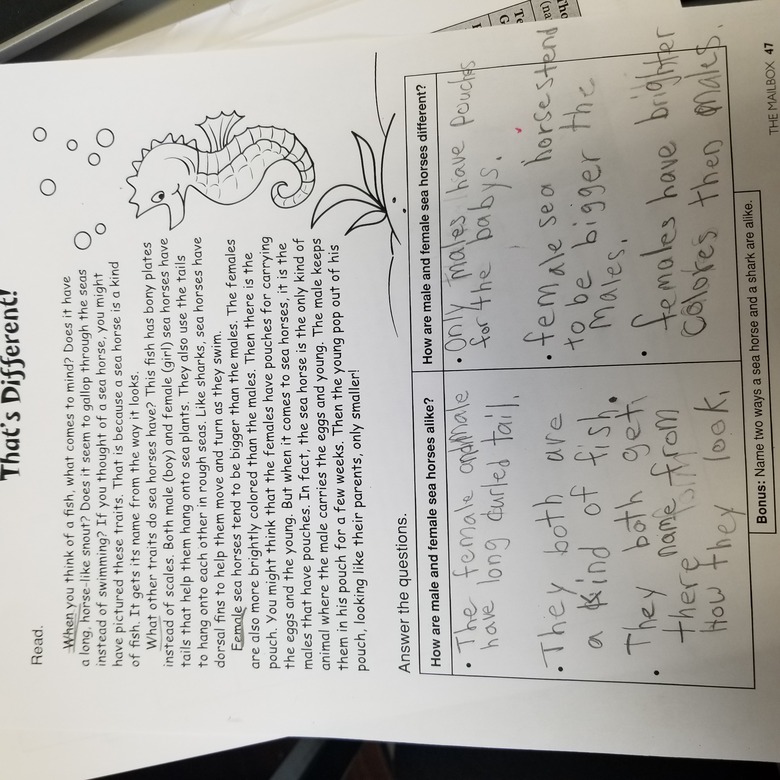 That's Different!
Read.
When you think of a fish, what comes to mind? Does it have
a long, horse-like snout? Does it seem to gallop through the seas
instead of swimming? If you thought of a sea horse, you might
have pictured these traits. That is because a sea horse is a kind
of fish. It gets its name from the way it looks.
What other traits do sea horses have? This fish has bony plates
instead of scales. Both male (boy) and female (girl) sea horses have
tails that help them hang onto sea plants. They also use the tails
to hang onto each other in rough seas. Like sharks, sea horses have
dorsal fins to help them move and turn as they swim.
Female sea horses tend to be bigger than the males. The females
are also more brightly colored than the males. Then there is the
pouch. You might think that the females have pouches for carrying
the eggs and the young. But when it comes to sea horses, it is the
males that have pouches. In fact, the sea horse is the only kind of
animal where the male carries the eggs and young. The male keeps
them in his pouch for a few weeks. Then the young pop out of his
pouch, looking like their parents, only smaller!
Answer the questions.
How are male and female sea horses alike?
• The female and male
have long curled tail.
• They both are
a kind of fish.
• They both get
there name from
How they look.
How are male and female sea horses different?
• Only males have pouches
for the babys.
• female sea horses tend
to be bigger the
males.
• females have brighter
colores then males.
Bonus: Name two ways a sea horse and a shark are alike.
THE MAILBOX 47